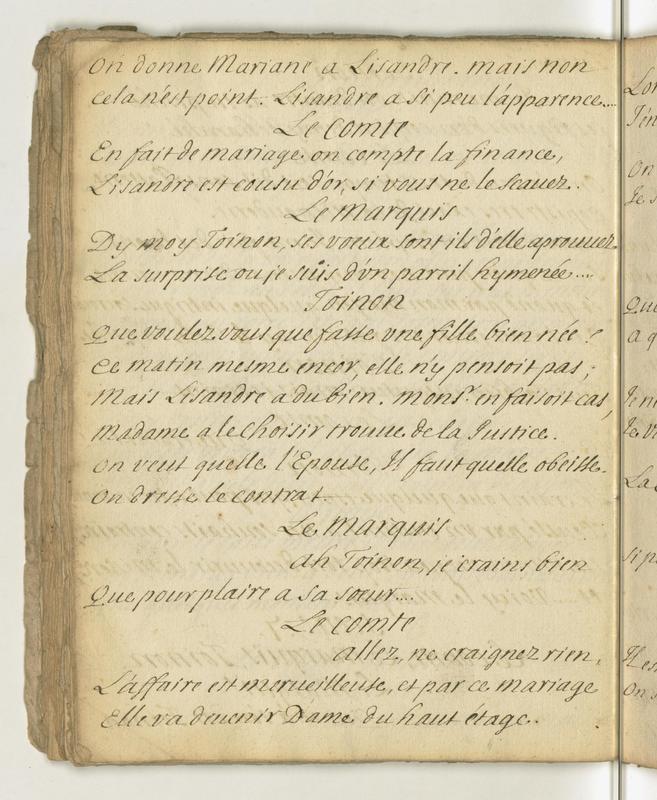 On donne Mariane a Lisandre. mais non
cela n'est point. Lisandre a si peu l'apparence....
Le comte
En fait de mariage on compte la finance,
Lisandre est cousu d'or, si vous ne le scauez.
Le Marquis
Dy moy Toinon, ses voeux sont ils d'elle aprouuez.
La surprise ou je suis d'vn pareil hymenée....
Toinon
Que voulez vous que fasse vne fille bien née?
Ce matin mesme encor, elle n'y pensoit pas;
Mais Lisandre a du bien. monsr. en faisoit cas,
Madame a le choisir trouue de la Justice.
on veut quelle l'Epouse, Il faut quelle obeisse.
On dresse le contrat.
Le Marquis
ah Toinon, je crains bien
Que pour plaire a sa soeur....
Le comte
allez, ne craignez rien.
L'affaire est merueilleuse, et par ce mariage
Elle va deuenir Dame du haut étage.
Lor
J'en
On
Je s
Que
a q
Je m
Je v
La
si p
Il es
on s